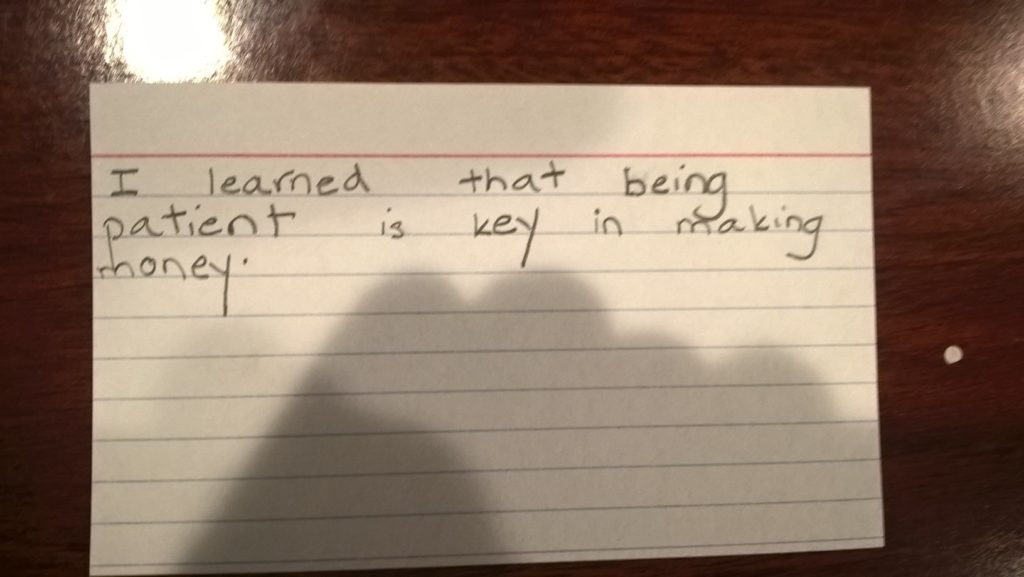 I learned that being
patient is key in making
money.